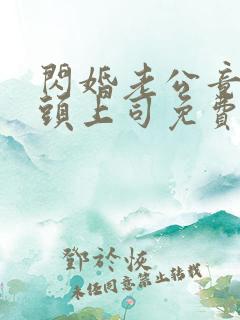 閃婚老公竟
頭上司免費
鄧於恢
未經同意禁止轉載